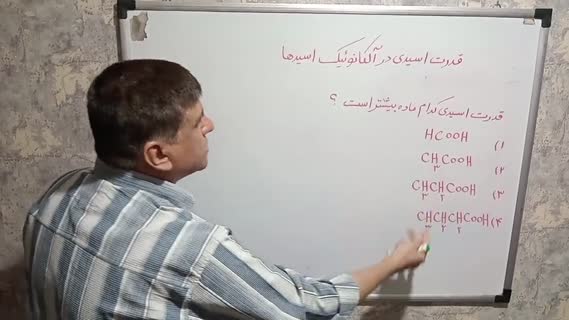 قدرت اسیدی در آلکانوئیک اسیدها
قدرت اسیدی کدام ماده بیشتر است ؟
۱) HCOOH
۲) CH₃COOH
۳) CH₃CH₂COOH
۴) CH₃CH₂CH₂COOH